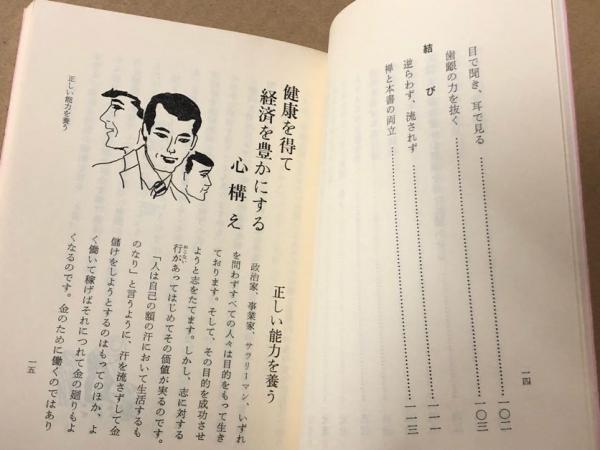 目で聞き、耳で見る……………………一〇二
歯齦の力を抜く……………………一〇三
結び
逆らわず、流されず……………………一一一
禅と本書の両立……………………一一三
一四
健康を得て
経済を豊かにする
心構え
正しい能力を養う
政治家、事業家、サラリーマン、いずれ
を問わずすべての人々は目的をもって生き
ております。そして、その目的を成功させ
ようと志をたてます。しかし、志に対する
行があってはじめてその価値が実るのです。
「人は自己の額の汗において生活するも
のなり」と言うように、汗を流さずして金
儲けをしようとするのはもってのほか、よ
く働いて稼げばそれにつれて金の廻りもよ
くなるのです。金のために働くのではあり
正しい能力を養う
一五